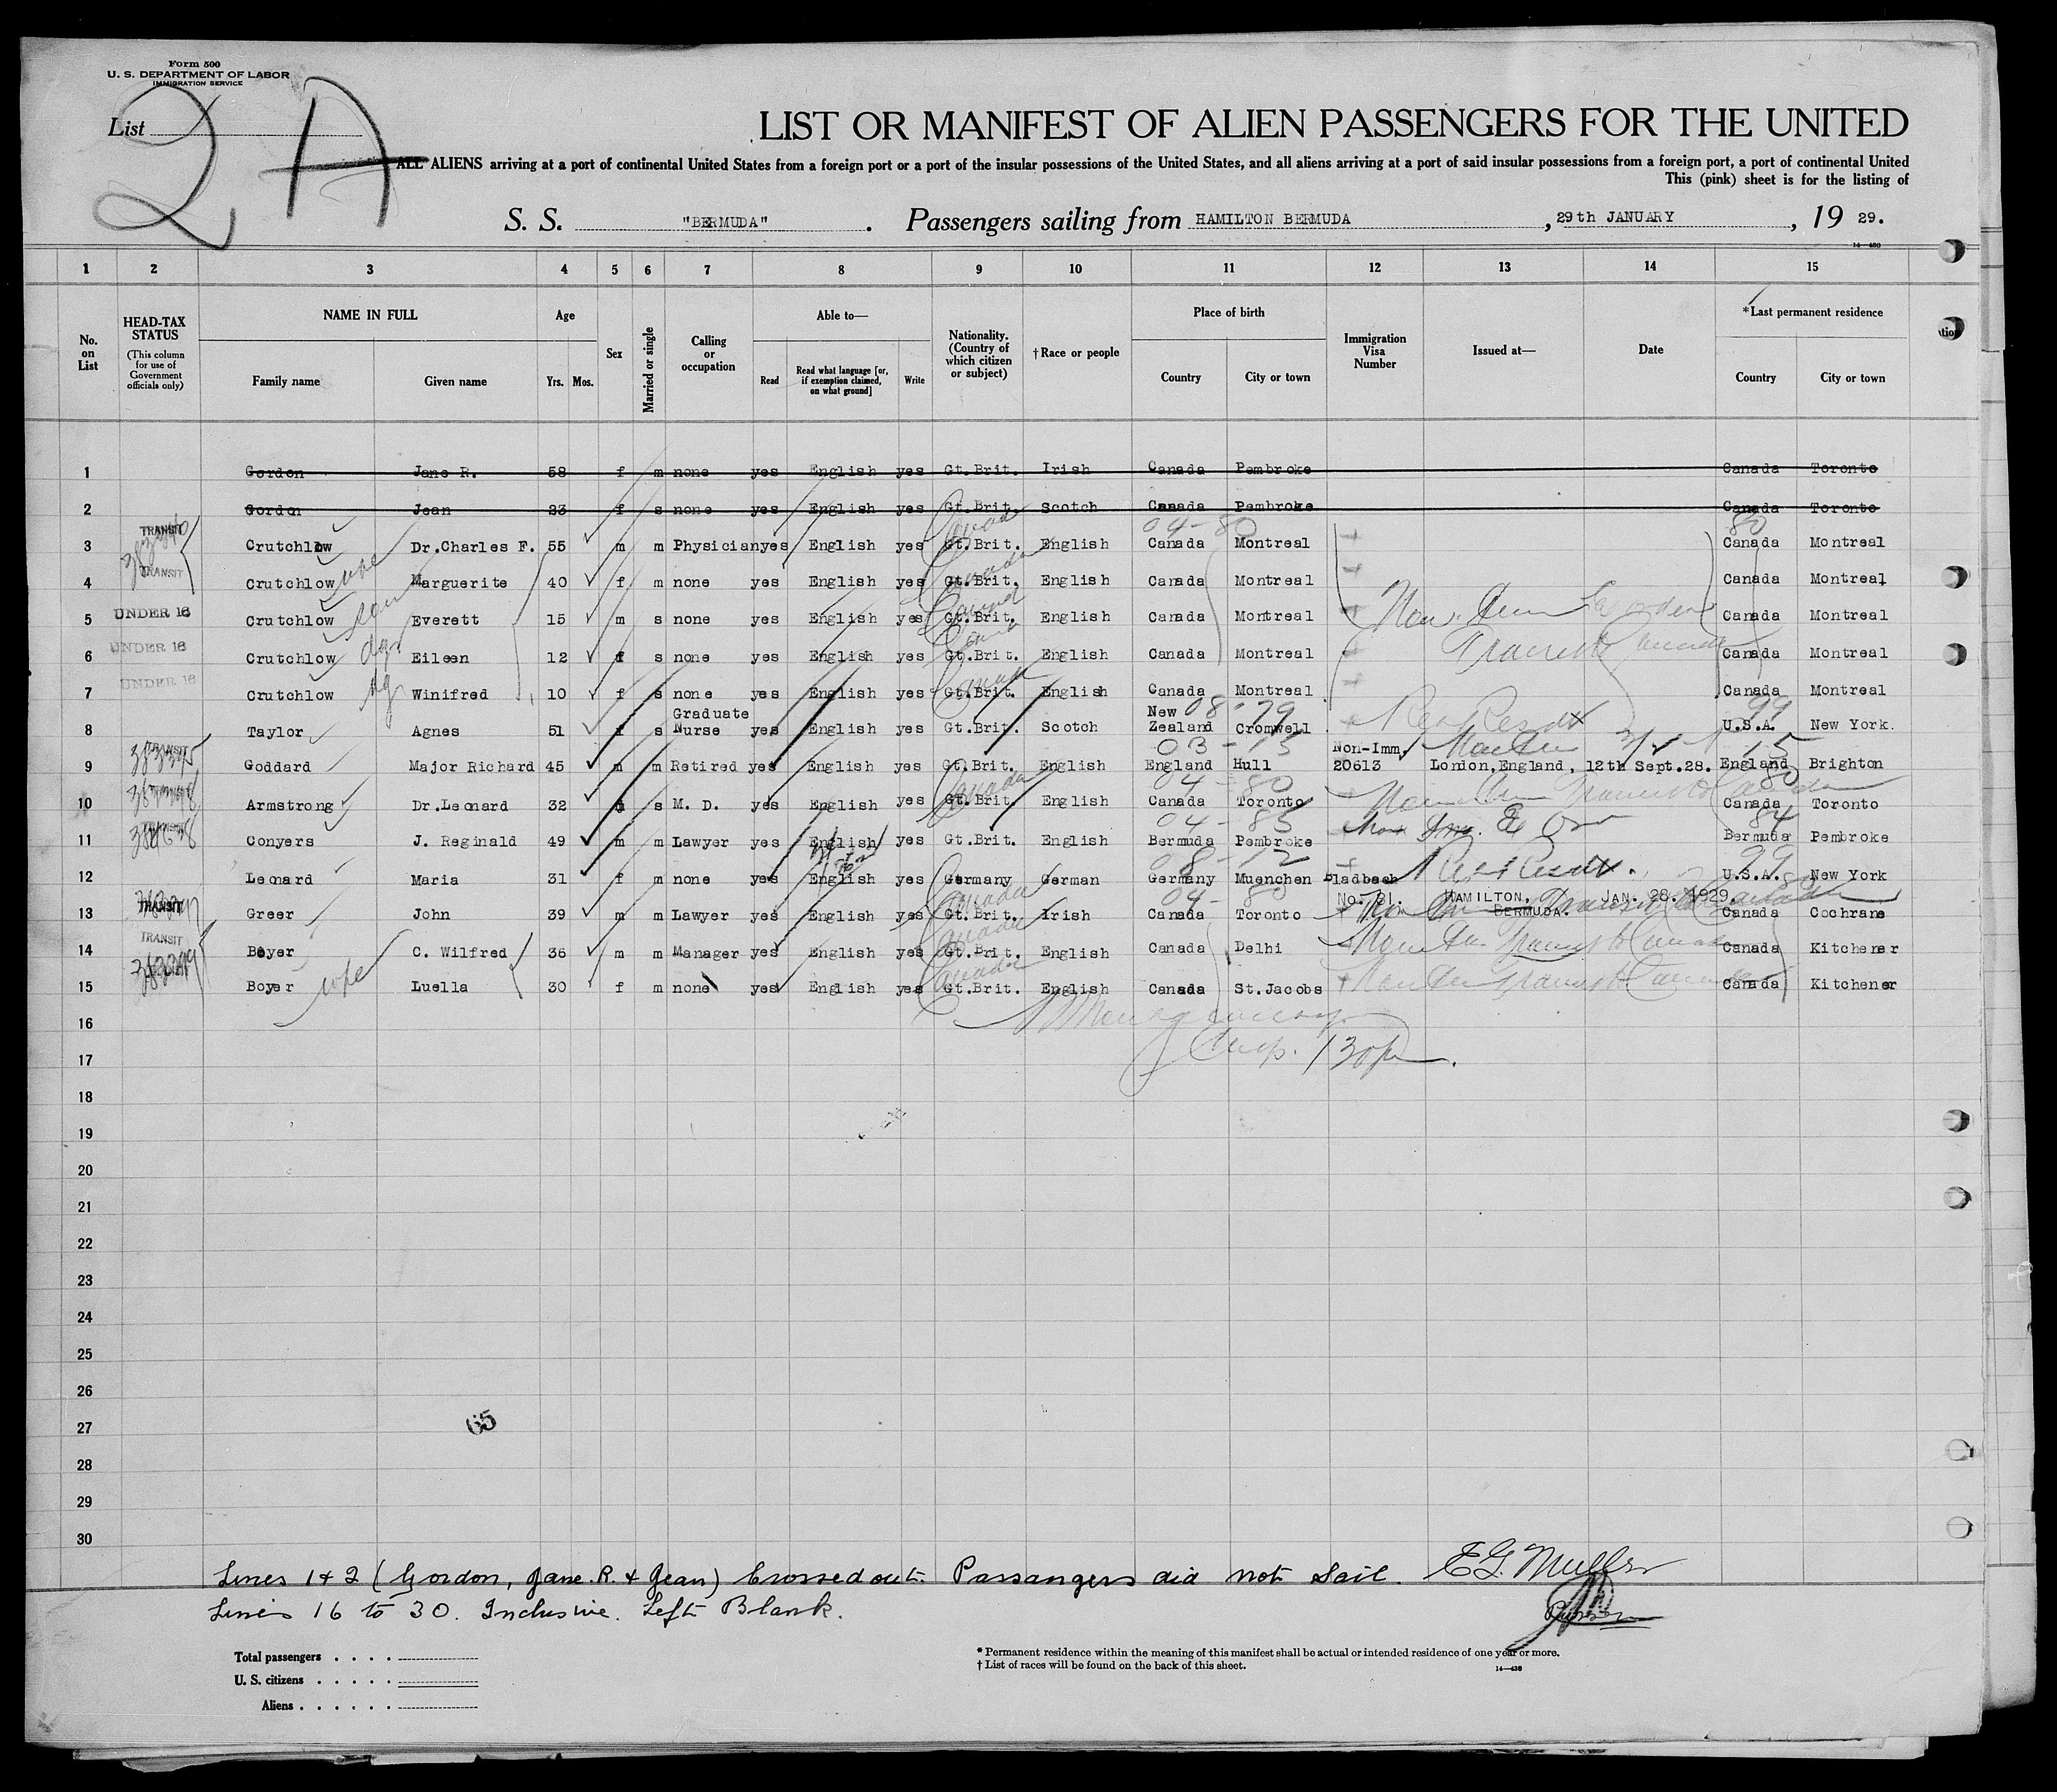 Form 500
U. S. DEPARTMENT OF LABOR
IMMIGRATION SERVICE
List 2 A
LIST OR MANIFEST OF ALIEN PASSENGERS FOR THE UNITED
ALL ALIENS arriving at a port of continental United States from a foreign port or a port of the insular possessions of the United States, and all aliens arriving at a port of said insular possessions from a foreign port, a port of continental United
This (pink) sheet is for the listing of
S. S. "BERMUDA". Passengers sailing from HAMILTON BERMUDA, 29th JANUARY, 19 29.
14—430
1 2 3 4 5 6 7 8 9 10 11 12 13 14 15
No. on List
HEAD-TAX STATUS (This column for use of Government officials only)
NAME IN FULL Family name Given name
Age Yrs. Mos.
Sex
Married or single
Calling or occupation
Able to— Read Read what language [or, if exemption claimed, on what ground] Write
Nationality. (Country of which citizen or subject)
†Race or people
Place of birth Country City or town
Immigration Visa Number
Issued at—
Date
*Last permanent residence Country City or town
1 Gordon Jane R. 58 f m none yes English yes Gt.Brit. Irish Canada Pembroke Canada Toronto
2 Gordon Jean 23 f s none yes English yes Gt.Brit. Scotch Canada Pembroke Canada Toronto
TRANSIT Canada 04-80 80
3 Crutchlow Dr.Charles F. 55 m m Physician yes English yes Gt.Brit. English Canada Montreal Canada Montreal
TRANSIT wife Canada
4 Crutchlow Marguerite 40 f m none yes English yes Gt.Brit. English Canada Montreal Canada Montreal
UNDER 16 son Canada
5 Crutchlow Everett 15 m s none yes English yes Gt.Brit. English Canada Montreal Canada Montreal
UNDER 16 dgr Canada Transit to Canada
6 Crutchlow Eileen 12 f s none yes English yes Gt.Brit. English Canada Montreal Canada Montreal
UNDER 16 dgr Canada
7 Crutchlow Winifred 10 f s none yes English yes Gt.Brit. English Canada Montreal Canada Montreal
08-79 99
8 Taylor Agnes 51 f s Graduate Nurse yes English yes Gt.Brit. Scotch New Zealand Cromwell U.S.A. New York.
TRANSIT 03-15 15
9 Goddard Major Richard 45 m m Retired yes English yes Gt.Brit. English England Hull Non-Imm. 20613 London,England, 12th Sept.28. England Brighton
Canada 04-80 80
10 Armstrong Dr.Leonard 32 m s M. D. yes English yes Gt.Brit. English Canada Toronto Canada Toronto
04-85 84
11 Conyers J. Reginald 49 m m Lawyer yes English yes Gt.Brit. English Bermuda Pembroke Bermuda Pembroke
08-12 99
12 Leonard Maria 31 f m none yes English yes Germany German Germany Muenchen Gladbach U.S.A. New York
TRANSIT Canada 04-80 HAMILTON, BERMUDA. JAN. 28. 1929
13 Greer John 39 m m Lawyer yes English yes Gt.Brit. Irish Canada Toronto Canada Cochrane
TRANSIT Canada
14 Boyer C. Wilfred 36 m m Manager yes English yes Gt.Brit. English Canada Delhi Canada Kitchener
wife Canada
15 Boyer Luella 30 f m none yes English yes Gt.Brit. English Canada St.Jacobs Canada Kitchener
16
17
18
19
20
21
22
23
24
25
26
27
65
28
29
30
Lines 1 & 2 (Gordon, Jane. R. & Jean) Crossed out. Passangers did not Sail. E G Muller
Lines 16 to 30. Inclusive. Left Blank. Purser
Total passengers
U. S. citizens
Aliens
* Permanent residence within the meaning of this manifest shall be actual or intended residence of one year or more.
† List of races will be found on the back of this sheet.
14—430